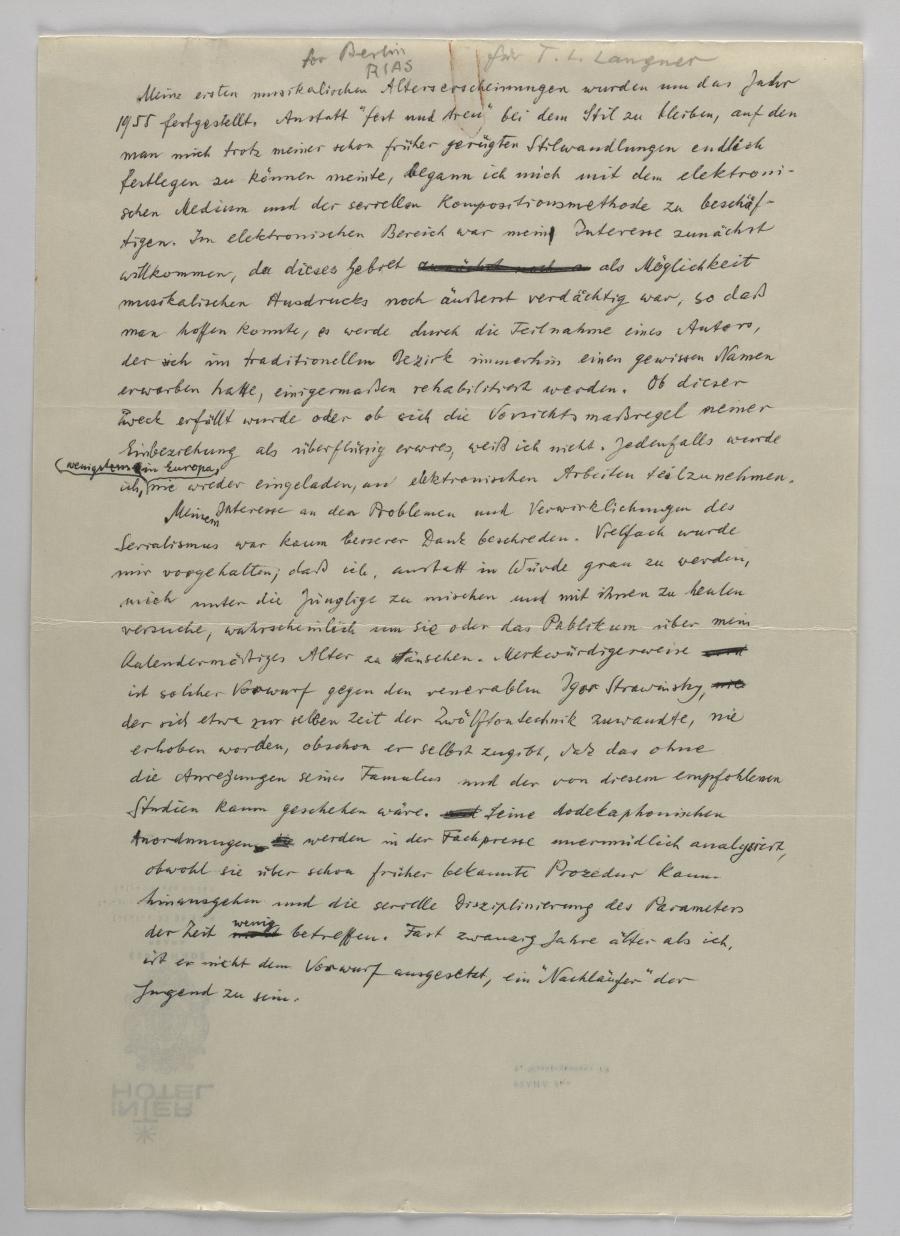 for Berlin
RIAS
für T. L. Langner
Meine ersten musikalischen Alterserscheinungen wurden um das Jahr
1955 festgestellt. Anstatt "fest und treu" bei dem Stil zu bleiben, auf den
man mich trotz meiner schon früher gerügten Stilwandlungen endlich
festlegen zu können meinte, begann ich mich mit dem elektroni-
schen Medium und der seriellen Kompositionsmethode zu beschäf-
tigen. Im elektronischen Bereich war mein Interesse zunächst
willkommen, da dieses Gebiet als Möglichkeit
musikalischen Ausdrucks noch äußerst verdächtig war, so daß
man hoffen konnte, es werde durch die Teilnahme eines Autors,
der sich im traditionellen Bezirk immerhin einen gewissen Namen
erworben hatte, einigermaßen rehabilitiert werden. Ob dieser
Zweck erfüllt wurde oder ob sich die Vorsichtsmaßregel meiner
Einbeziehung als überflüssig erwies, weiß ich nicht. Jedenfalls wurde
(wenigstens in Europa)
ich, nie wieder eingeladen, an elektronischen Arbeiten teilzunehmen.
Meinem Interesse an den Problemen und Verwirklichungen des
Serialismus war kaum besserer Dank beschieden. Vielfach wurde
mir vorgehalten, daß ich, anstatt in Würde grau zu werden,
mich unter die Jünglige zu mischen und mit ihnen zu heulen
versuche, wahrscheinlich um sie oder das Publikum über mein
kalendermäßiges Alter zu täuschen. Merkwürdigerweise
ist solcher Vorwurf gegen den venerablen Igor Strawinsky,
der sich etwa zur selben Zeit der Zwölftontechnik zuwandte, nie
erhoben worden, obschon er selbst zugibt, daß das ohne
die Anregungen seines Famulus und der von diesem empfohlenen
Studien kaum geschehen wäre. Seine dodekaphonischen
Anordnungen werden in der Fachpresse unermüdlich analysiert,
obwohl sie über schon früher bekannte Prozedur kaum
hinausgehen und die serielle Disziplinierung des Parameters
der Zeit wenig betreffen. Fast zwanzig Jahre älter als ich,
ist er nicht dem Vorwurf ausgesetzt, ein "Nachläufer" der
Jugend zu sein.
HOTEL
INTER